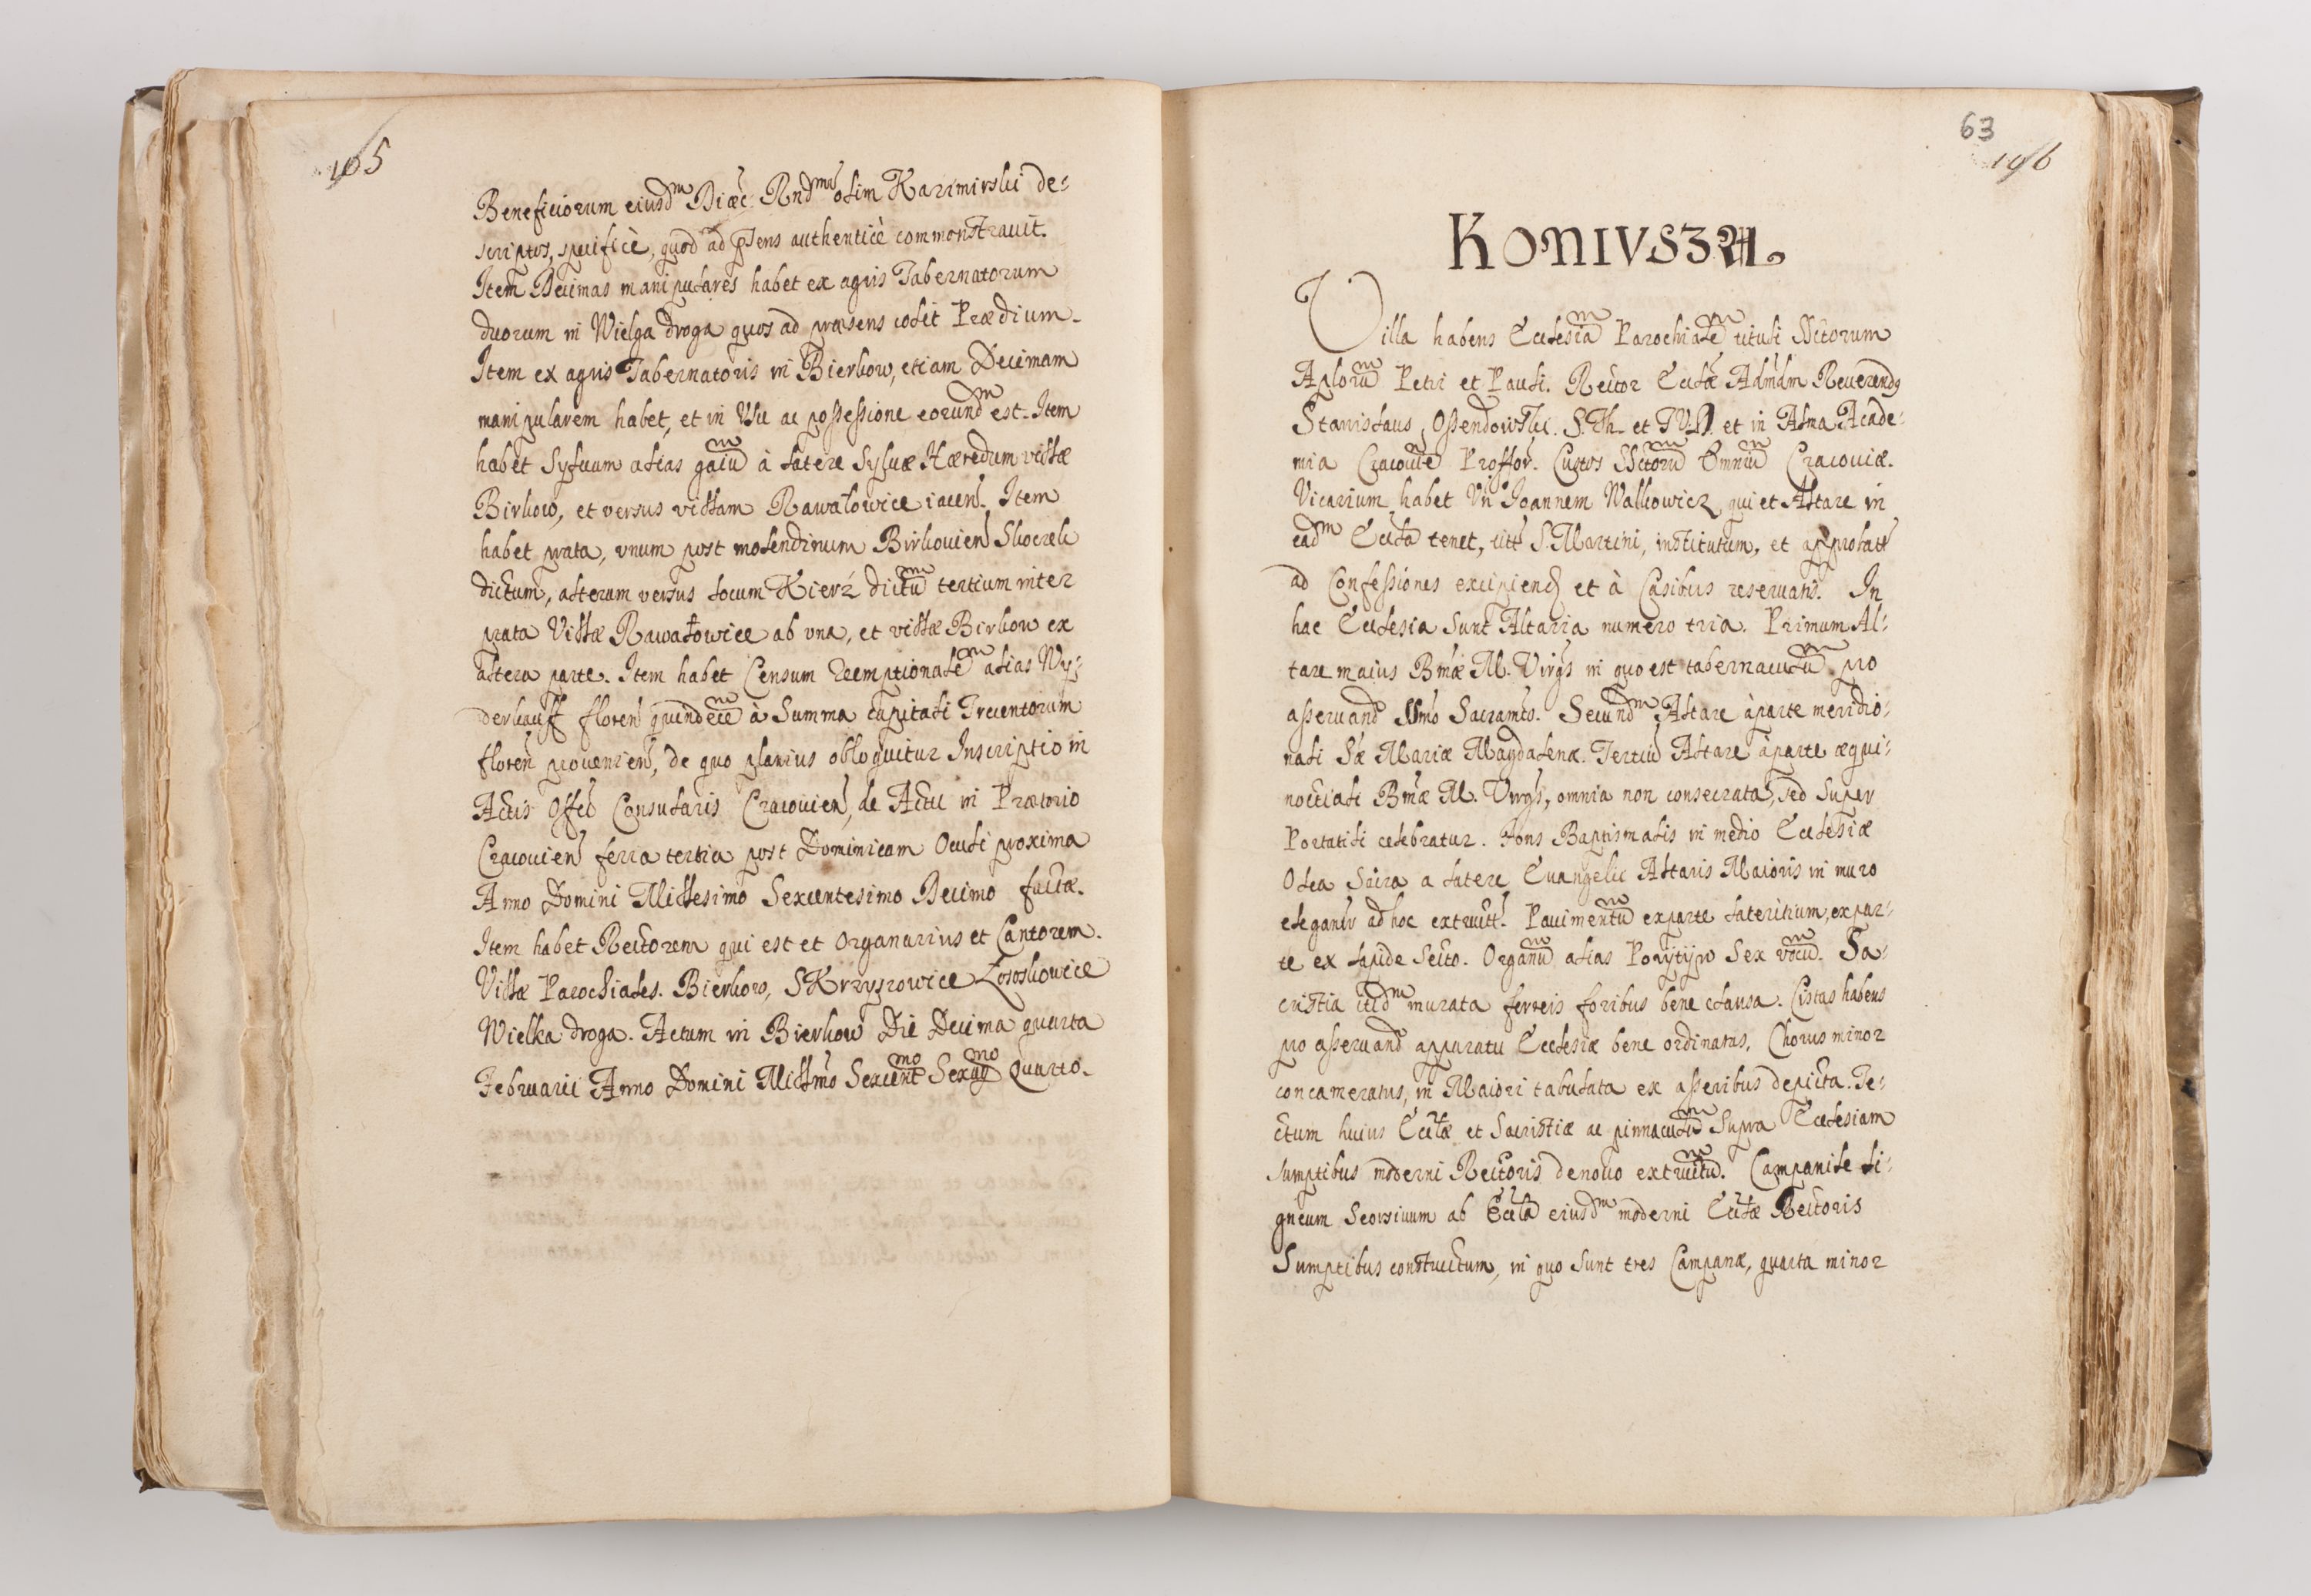 105
Beneficiorum eiusdm Diæc: Rndmu olim Kazimirski de:
scriptos, spècificè, quod ad psens authenticè commonstrauit.
Item Decimas manipulares habet ex agris Tabernatorum
duorum in Wielga droga quos ad præsens colit Prædium.
Item ex agris Tabernatoris in Bierkow, etiam Decimam
manipularem habet, et in Usu ac possessione eorundm est. Item
habet Syluam alias gaiu à latere Syluæ Hæredum villæ
Birkow, et versus villam Rawałowice iacen. Item
habet prata, vnum post molendinum Birkouien Skoczek
dictum, alterum versus locum Kierz dictu tertium inter
prata Villæ Rawałowice ab vna, et villæ Birkow ex
altera parte. Item habet Censum reemptionale alias Wy:
derkauff floren quindece à Summa capitali Trecentorum
floren prouenien, de quo planius obloquitur Inscriptio in
Actis Offcÿ Consularis Cracouien, de Actu in Prætorio
Cracouien feria tertia post Dominicam Oculi proxima
Anno Domini Millesimo Sexcentesimo Decimo factæ.
Item habet Rectorem qui est et Organarius et Cantorem.
Villæ Parochiales. Bierkow, SKrzyszowice Łososkowice
Wielka droga. Actum in Bierkow Die Decima quarta
Februarii Anno Domini Millmo Sexcent Sexag Quarto.
63
196
KONIVSZA.
Villa habens Ecclesia Parochiale tituli SSctorum
Aploru Petri et Pauli. Rector Eclæ Admdm Reuerendg
Stanislaus Ossendowski. S. Th. et IVD. et in Alma Acade:
mia Cracouie Proffor. Custos SSctoru Omniu Cracouiæ.
Vicarium habet Vn Joannem Walkowicz, qui et Altare in
eadm Eccla tenet, titt S. Martini, institutum, et approbatt
ad Confessiones excipiend et à Casibus reseruatis. In
hac Ecclesia Sunt Altaria numero tria. Primum Al:
tare maius Bmæ M. Virgs in quo est tabernaculu pro
asseruand SSmo Sacramto. Secundm Altare àparte meridio:
nali Sæ Mariæ Magdalenæ. Tertiu Altare àparte æqui:
noctiali Bmæ M. Virgs, omnia non consecrata, sed Super
Portatili celebratur. Fons Baptismalis in medio Ecclesiæ
Olea Sacra a latere Euangelic Altaris Maioris in muro
eleganter ad hoc extructt. Pauimentu exparte lateritium, expar:
te ex lapide Secto. Organu alias Pozytyw Sex vocu. Sa:
cristia itdm murata ferreis foribus bene clausa. Cistas habens
pro asseruand apparatu Ecclesiæ bene ordinatas, Chorus minor
concameratus, in Maiori tabulata ex asseribus depicta. Te:
ctum huius Ecclæ et Sacristiæ ac pinnaculu Supra Ecclesiam
sumptibus moderni Rectoris denouo extructu. Campanile li:
gneum Seorsiuum ab Eccla eiusdm moderni Ecclæ Rectoris
Sumptibus constructum, in quo Sunt tres Campanæ, quarta minor